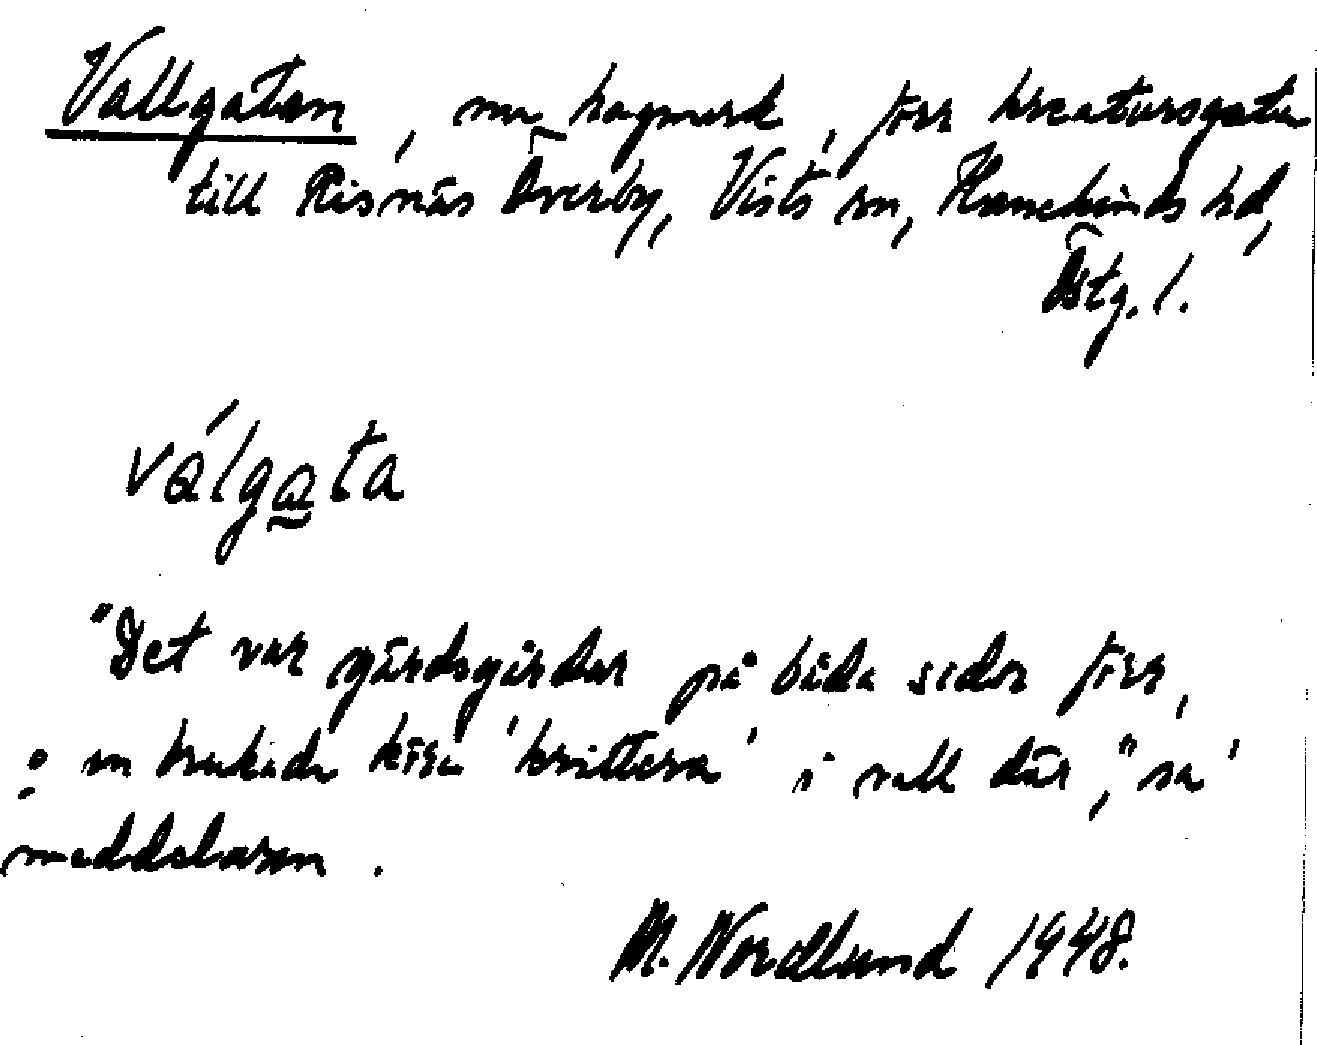 Vallgatan, nu hagmark, förr kreatursgata
till Risnäs Överby, Vists sn, Hanekinds hd,
Östg. l.
válgata
"Det var gärdsgårdar på båda sidor förr,
o en brukade köra 'krittera' i vall där," sa'
meddelaren.
M. Nordlund 1948.